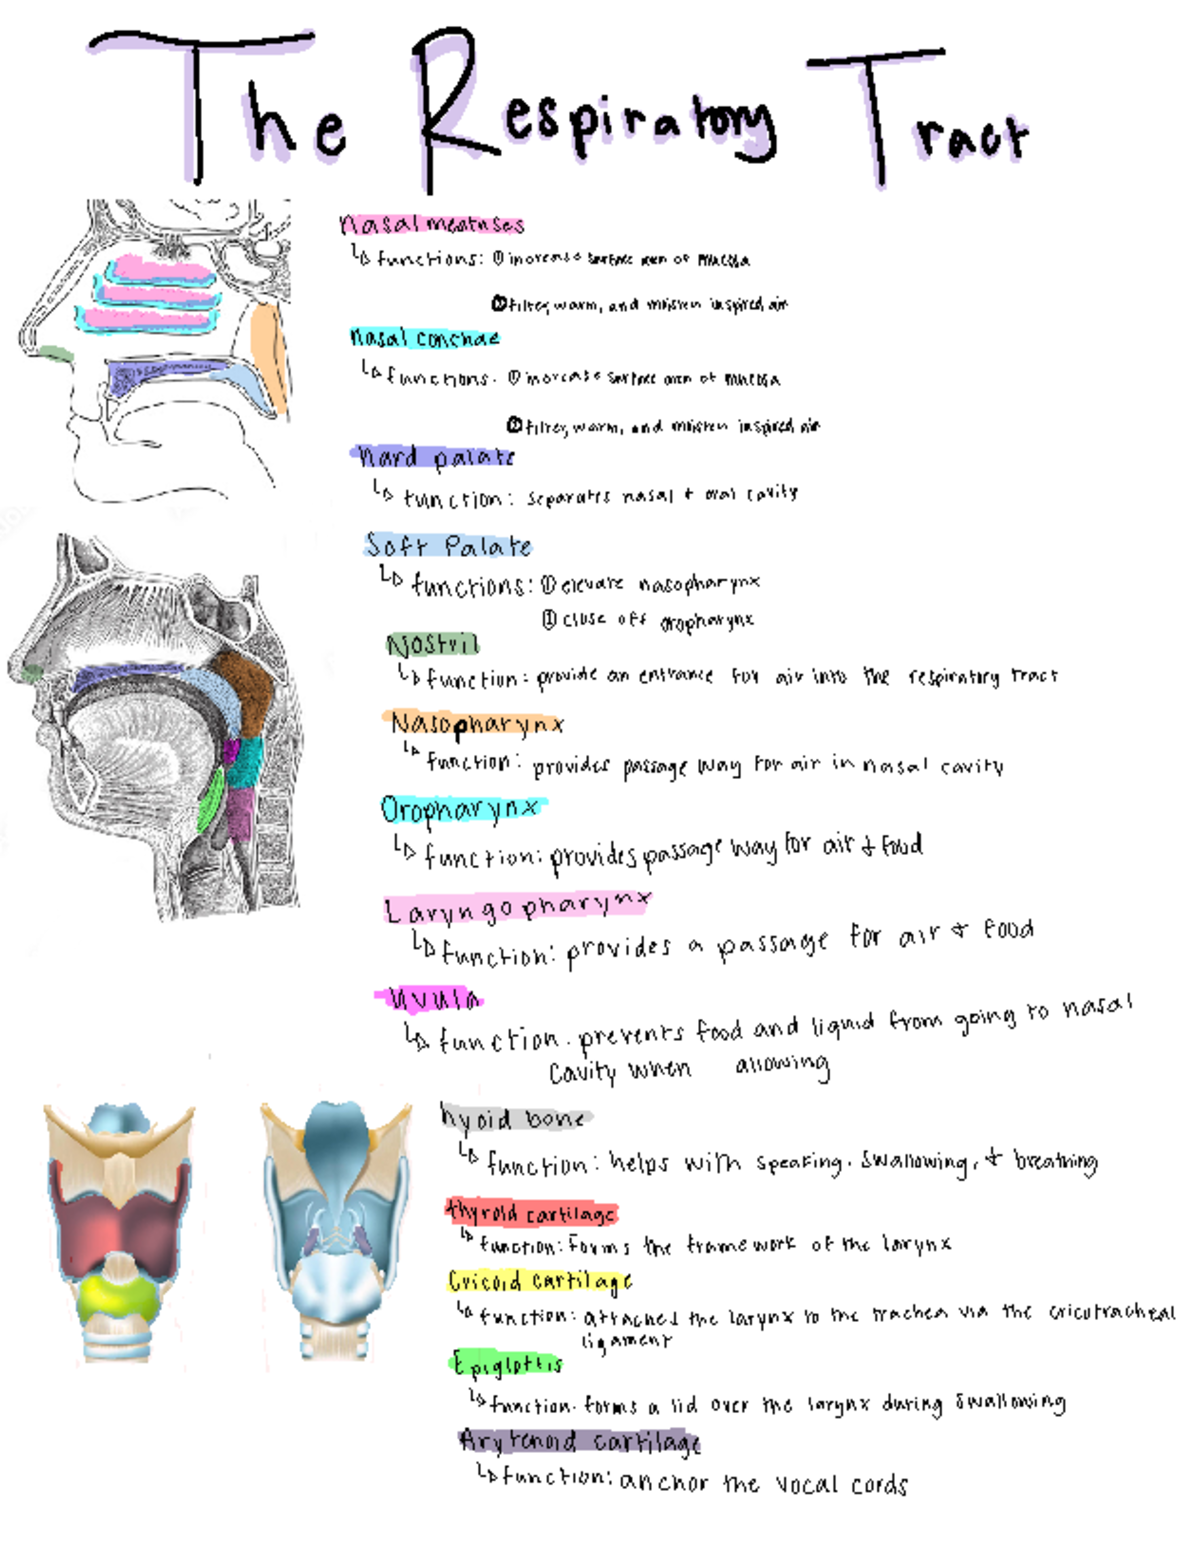 The Respiratory Tract
Nasal meatuses
↳ functions: ① increase surface area of mucosa
② filter, warm, and moisten inspired air
Nasal conchae
↳ functions. ① increase surface area of mucosa
② filter, warm, and moisten inspired air
Hard palate
↳ function: separates nasal + oral cavity
Soft Palate
↳ functions: ① elevate nasopharynx
② close off oropharynx
Nostril
↳ function: provide an entrance for air into the respiratory tract
Nasopharynx
↳ function: provides passage way for air in nasal cavity
Oropharynx
↳ function: provides passage way for air + food
Laryngopharynx
↳ function: provides a passage for air + food
Uvula
↳ function. prevents food and liquid from going to nasal
cavity when allowing
hyoid bone
↳ function: helps with speaking. swallowing, + breathing
thyroid cartilage
↳ function: Forms the framework of the larynx
Cricoid cartilage
↳ function: attaches the larynx to the trachea via the cricotracheal
ligament
Epiglottis
↳ function. forms a lid over the larynx during swallowing
Arytenoid cartilage
↳ function: anchor the vocal cords